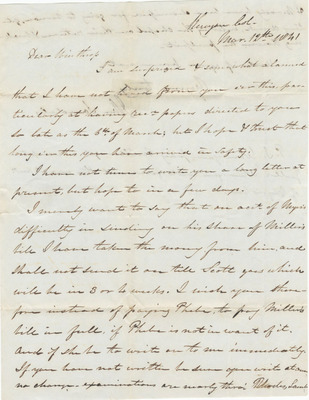 Kenyon Col.
Mar. 12th 1841
Dear Winthrop
I am surprized & somewhat alarmed
that I have not heard from you ere this par-
ticularly at having rec'd papers directed to you
so late as the 6th of March, but I hope & trust that
long ere this you have arrived in safety.
I have not time to write you a long letter at
present, but hope to in a few days.
I merely want to say that on act of
difficulty in sending on his share of Millers
bill I have taken the money from him and
shall not send it on till Scott goes which
will be in 3 or 4 weeks. I wish you there
fore instead of paying Phebe, to pay Millers
bill in full, if Phebe is not in want of it,
and if she be to write on to me immediately.
If you have not written be sure you write at once
no change. examinations are nearly thro'.